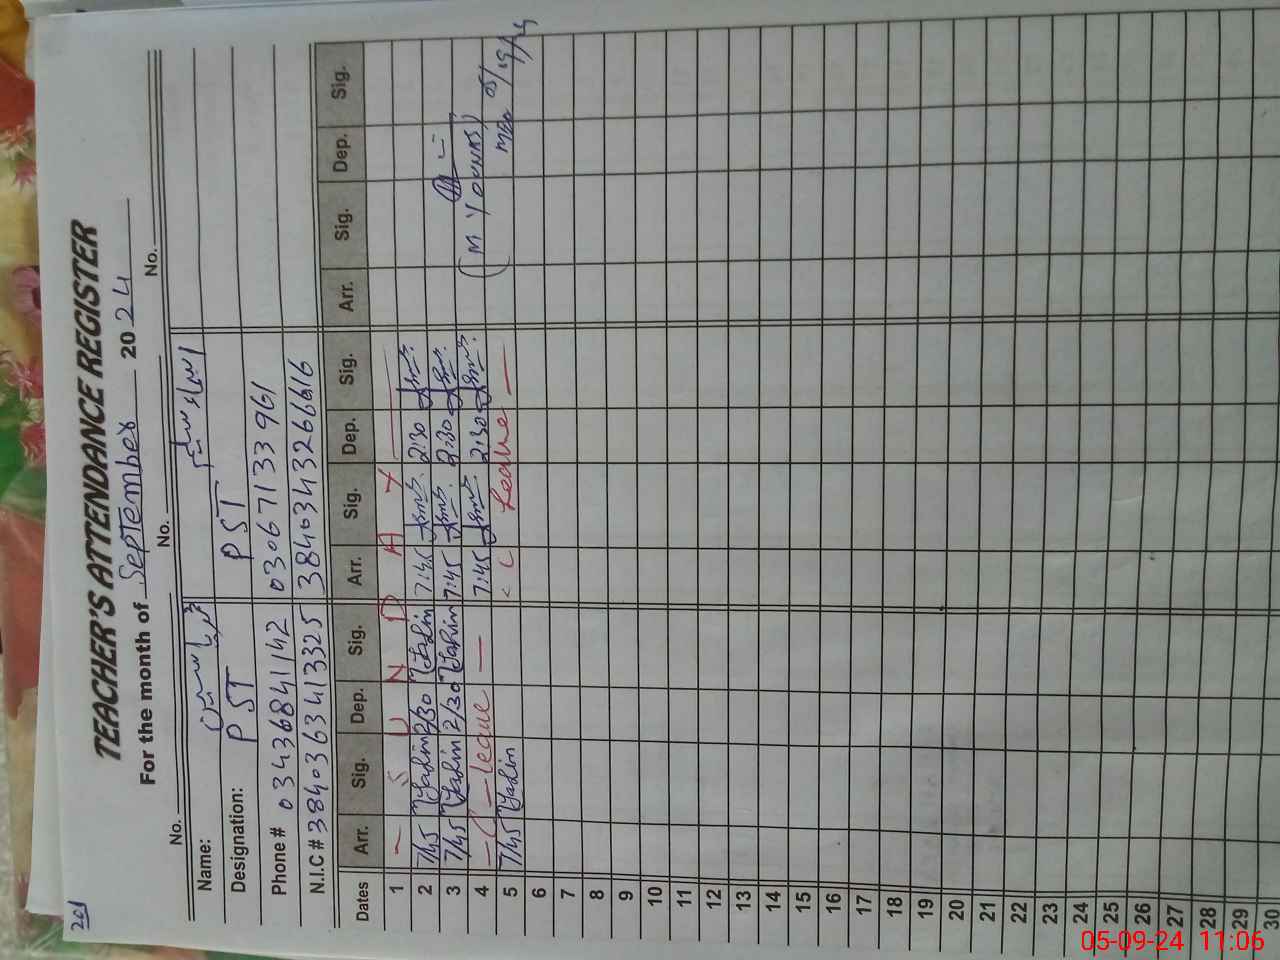 201
TEACHER'S ATTENDANCE REGISTER
For the month of September 2024
No. No. No.
Name:
Designation: PST PST
Phone # 03436841142 03067133961
N.I.C # 3840363413325 3840343266616
Dates Arr. Sig. Dep. Sig. Arr. Sig. Dep. Sig. Arr. Sig. Dep. Sig.
1 — S U N D A Y
2 7/45 Yasmin 2/30 Yasmin 7:45 2:30
3 7/45 Yasmin 2/30 Yasmin 7:45 2:30
4 — C — leave — 7:45 2:30 (M YOUNAS)
5 7/45 Yasmin < C Leave —
6
7
8
9
10
11
12
13
14
15
16
17
18
19
20
21
22
23
24
25
26
27
28
29
30
05-09-24 11:06